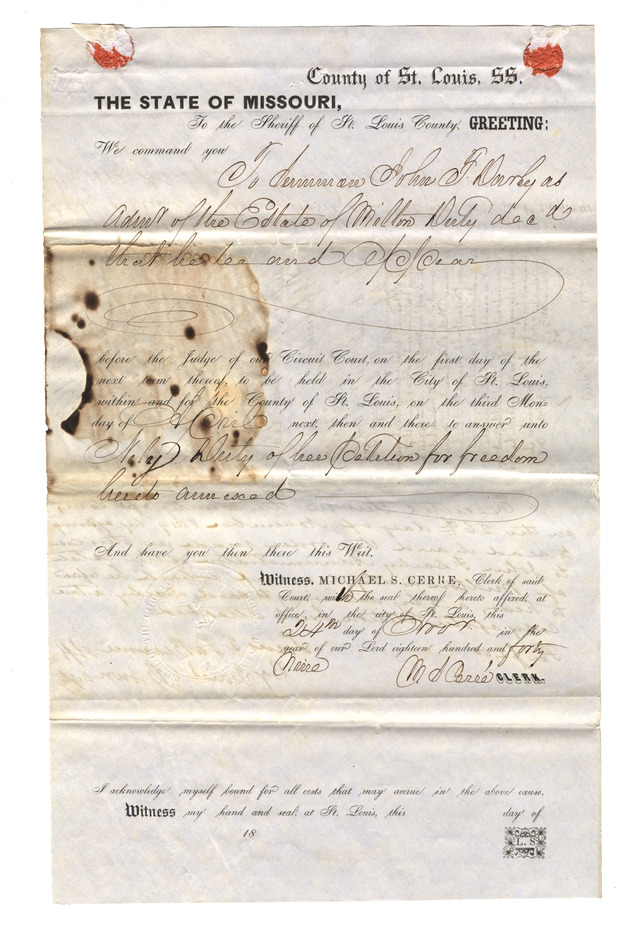 County of St. Louis, SS.
THE STATE OF MISSOURI,
To the Sheriff of St. Louis County, GREETING:
We command you
To Summon John F. Darby as
Admr of the Estate of Milton Duty decd
that he be and appear
before the Judge of our Circuit Court, on the first day of the
next term thereof, to be held in the City of St. Louis,
within and for the County of St. Louis, on the third Mon-
day of April next, then and there to answer unto
Duty of her Petition for freedom
hereto annexed
And have you then there this Writ.
Witness, MICHAEL S. CERRE, Clerk of said
Court, with the seal thereof hereto affixed, at
office in the city of St. Louis, this
24th day of Novr in the
year of our Lord eighteen hundred and forty
Nine M S Cerré CLERK.
I acknowledge myself bound for all costs that may accrue in the above cause.
Witness my hand and seal, at St. Louis, this day of
18
L. S